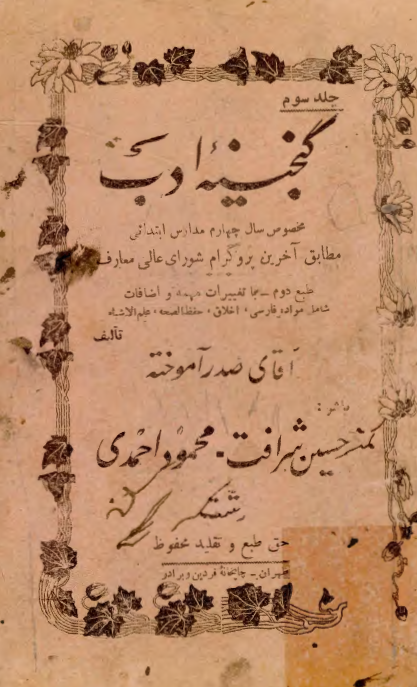 جلد سوم
گنجینهٔ ادب
مخصوص سال چهارم مدارس ابتدائی
مطابق آخرین پروگرام شورای عالی معارف
طبع دوم - با تغییرات مهمه و اضافات
شامل مواد: فارسی، اخلاق، حفظ الصحه، علم الاشیاء
تألیف
آقای صدر آموخته
ناشر:
کمتر حسین شرافت - محمود احمدی
حق طبع و تقلید محفوظ
طهران - چاپخانهٔ فردین و برادر